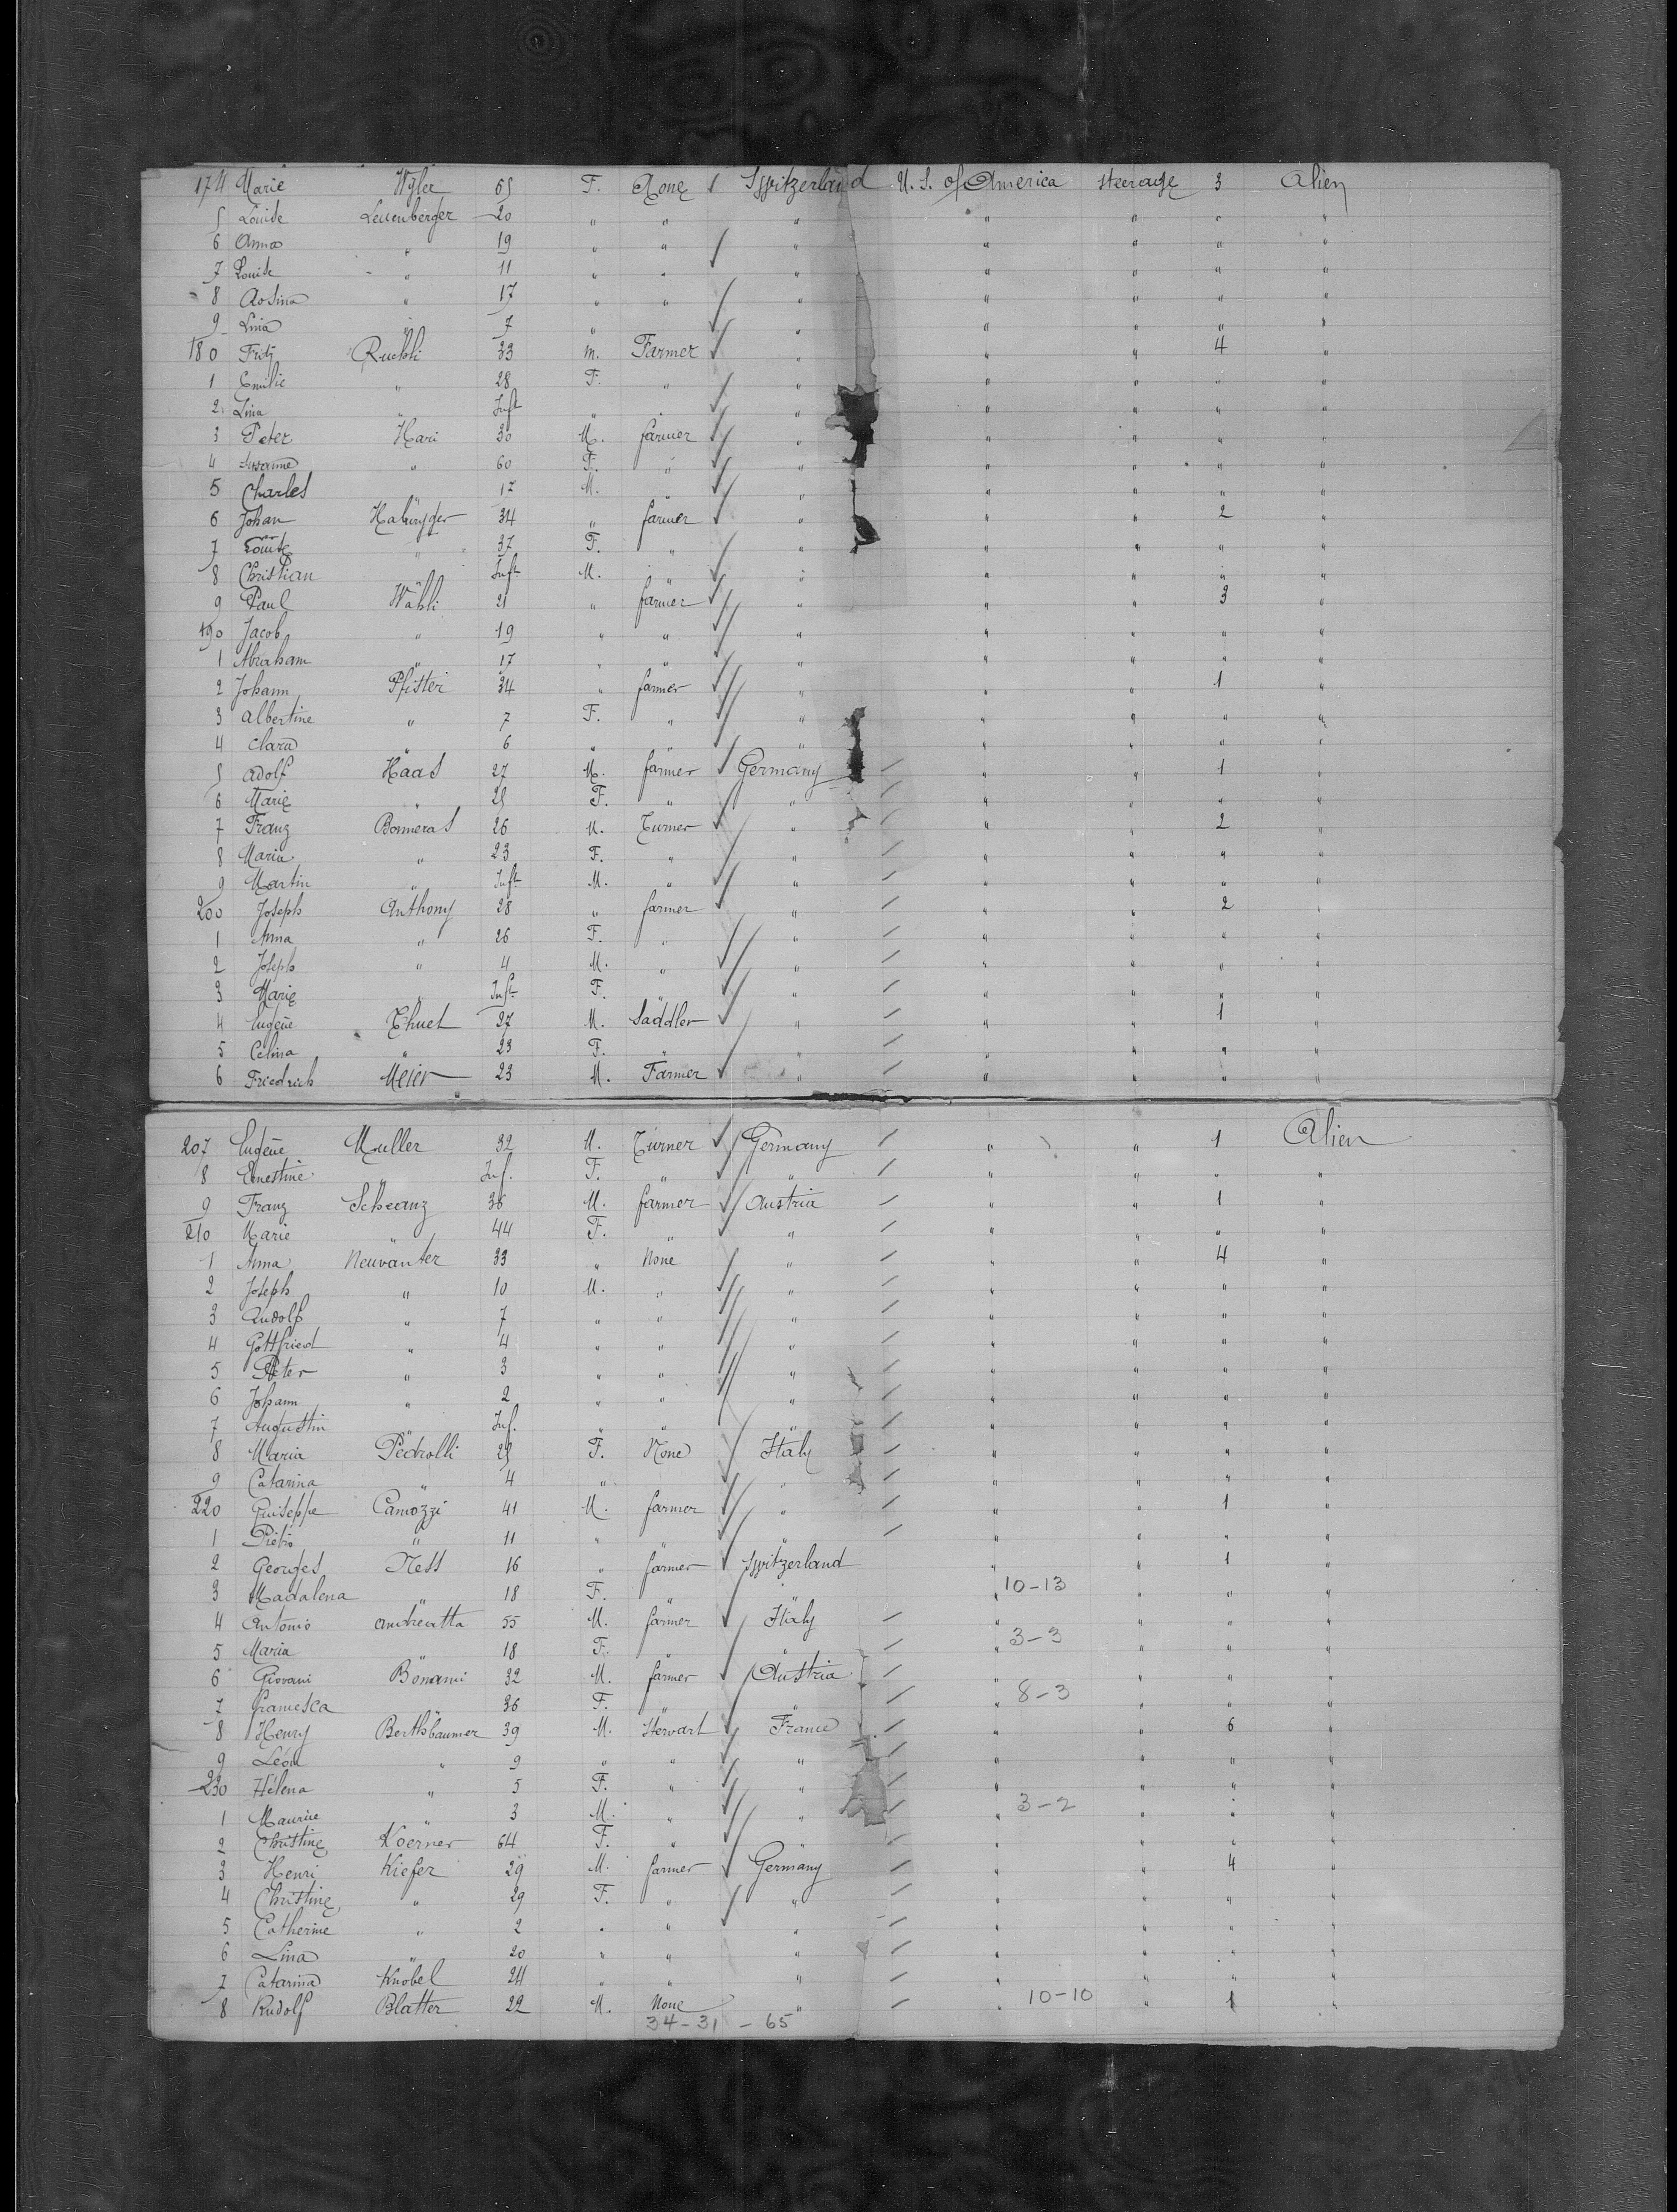 174 Marie Wyler 65 F. None Switzerland U. S. of America steerage 3 Alien
5 Louise Leuenberger 20 " " " " " " "
6 Anna " 19 " " " " " " "
7 Louise " 11 " " " " " " "
8 Rosina " 17 " " " " " " "
9 Lina " 7 " " " " " "
180 Fritz 33 m. Farmer " " " 4 "
1 Emilie " 28 F. " " " " " "
2 Lina " Inft " " " " " " "
3 Peter Hari 30 M. farmer " " " " "
4 Susanne " 60 F. " " " " " "
5 Charles " 17 M. " " " " " "
6 Johan 34 " farmer " " " 2 "
7 Louise " 37 F. " " " " " "
8 Christian " Inft M. " " " " " "
9 Paul Wähli 21 " farmer " " " 3 "
190 Jacob " 19 " " " " " " "
1 Abraham " 17 " " " " " " "
2 Johann Pfister 34 " farmer " " " 1 "
3 Albertine " 7 F. " " " " " "
4 Clara " 6 " " " " " " "
5 Adolf Haas 27 M. farmer Germany " " 1 "
6 Marie " 25 F. " " " " " "
7 Franz 26 M. Turner " " " 2 "
8 Maria " 23 F. " " " " " "
9 Martin " Inft M. " " " " " "
200 Joseph Anthony 28 " farmer " " " 2 "
1 Anna " 26 F. " " " " " "
2 Joseph " 4 M. " " " " " "
3 Marie " Inft F. " " " " " "
4 Eugène Thuet 27 M. Saddler " " " 1 "
5 Celina " 23 F. " " " " " "
6 Friedrich Meier 23 M. Farmer " " " " "
207 Eugène Muller 32 M. Turner Germany " " 1 Alien
8 Ernestine " Inf. F. " " " " " "
9 Franz Schranz 36 M. farmer Austria " " 1 "
210 Marie " 44 F. " " " " " "
1 Anna Neuvanter 33 " None " " " 4 "
2 Joseph " 10 M. " " " " " "
3 Rudolf " 7 " " " " " " "
4 Gottfried " 4 " " " " " " "
5 Peter " 3 " " " " " " "
6 Johann " 2 " " " " " " "
7 Augustin " Inf. " " " " " " "
8 Maria Pedrolli 25 F. None Italy " " " "
9 Catarina " 4 " " " " " "
220 Guiseppe Camozzi 41 M. farmer " " " 1 "
1 Pietro " 11 " " " " " " "
2 Georges Ness 16 " farmer Switzerland " " 1 "
3 Madalena " 18 F. " " " 10-13 " " "
4 Antonio Andreatta 55 M. farmer Italy " " " "
5 Maria " 18 F. " " " 3-3 " " "
6 Giovani Bonami 32 M. farmer Austria " " " "
7 Francesca " 36 F. " " " 8-3 " " "
8 Henry Berthbaumer 39 M. Stewart France " " 6 "
9 Léon " 9 " " " " " " "
230 Hélena " 5 F. " " " " " "
1 Maurice " 3 M. " " " 3-2 " " "
2 Christine Koerner 64 F. " " " " " "
3 Henri Kiefer 29 M. farmer Germany " " 4 "
4 Christine " 29 F. " " " " " "
5 Catherine " 2 " " " " " " "
6 Lina " 20 " " " " " " "
7 Catarina Knöbel 24 " " " " " " "
8 Rudolf Blatter 22 M. None " " 10-10 " 1 "
34-31 - 65